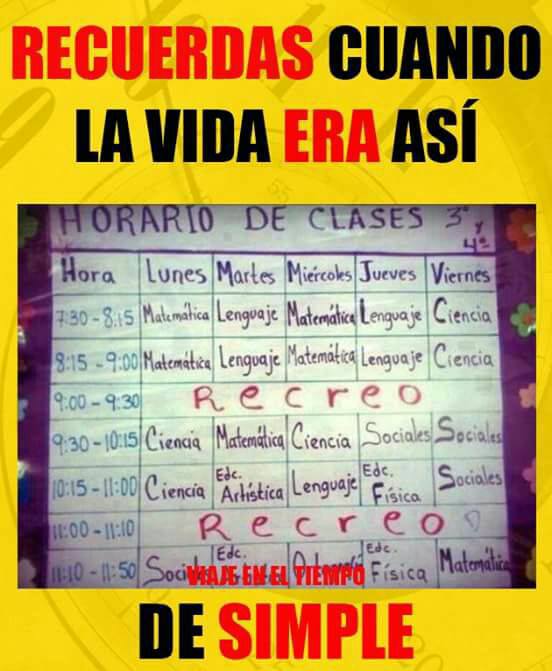 RECUERDAS CUANDO
LA VIDA ERA ASÍ
HORARIO DE CLASES 3° y 4°
Hora Lunes Martes Miércoles Jueves Viernes
7:30 - 8:15 Matemática Lenguaje Matemática Lenguaje Ciencia
8:15 - 9:00 Matemática Lenguaje Matemática Lenguaje Ciencia
9:00 - 9:30 Recreo
9:30 - 10:15 Ciencia Matemática Ciencia Sociales Sociales
10:15 - 11:00 Ciencia Edc. Artística Lenguaje Edc. Física Sociales
11:00 - 11:10 Recreo
11:10 - 11:50 Edc. Edc. Física Matemática
VIAJE EN EL TIEMPO
DE SIMPLE